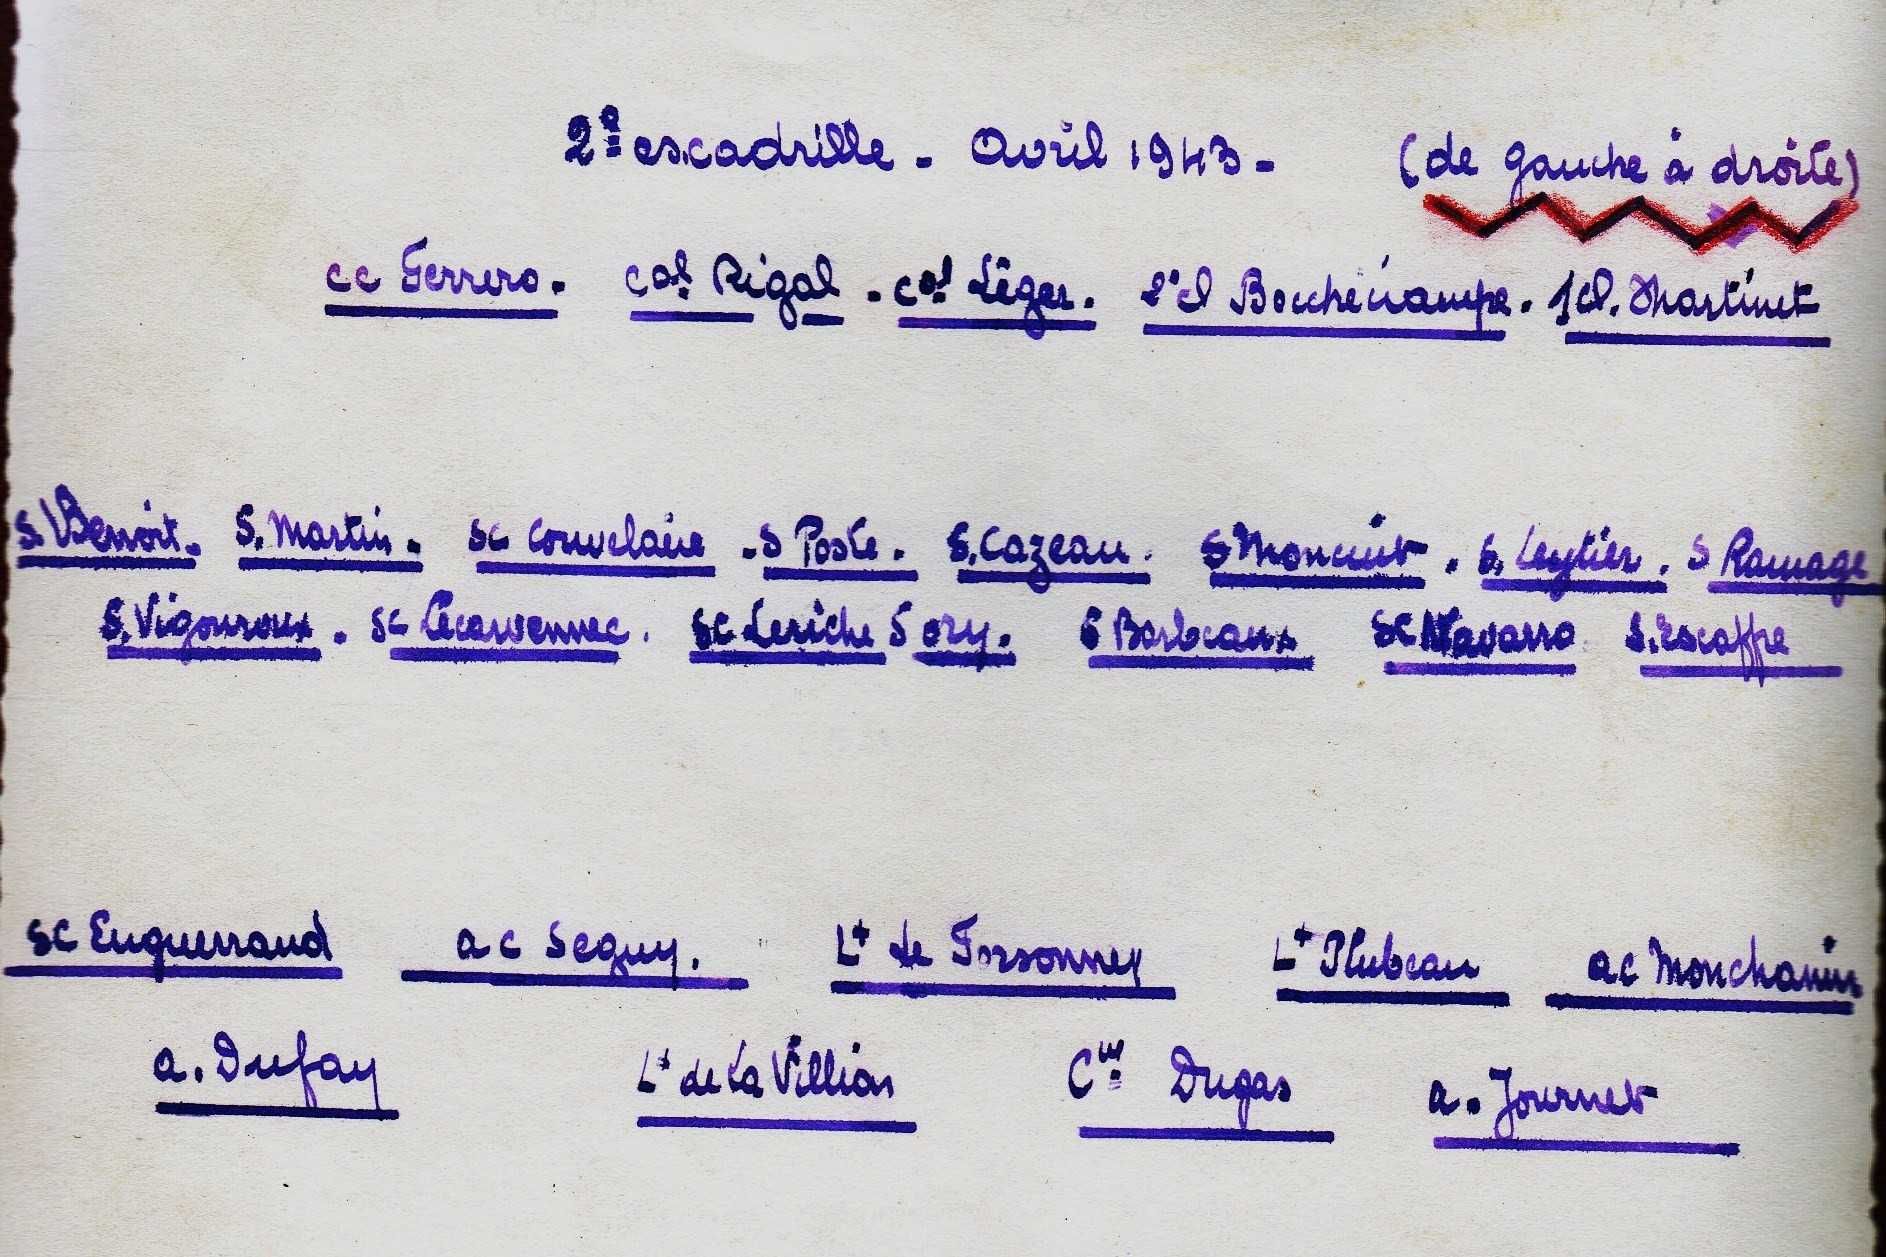 2e escadrille - Avril 1943 - (de gauche à droite)
cc Ferrero. cal Rigal. cal Léger. 2e cl Bouchecampe. 1 cl. Martinet
S. Benoit. S. Martin. Sc Couvelaire. S Poste. S. Cazeau. S Moncuit. S. Leylier. S Ramage
S. Vigouroux. Sc Lecarvennec. Sc Leriche S ory. S Barbeaux Sc Navarro S. Escaffre
Sc Enguerrand ac Seguy. Lt de Torsonney Lt Plubeau ac Monchanin
a. Dufay Lt de La Villéon Cne Dugas a. Journet